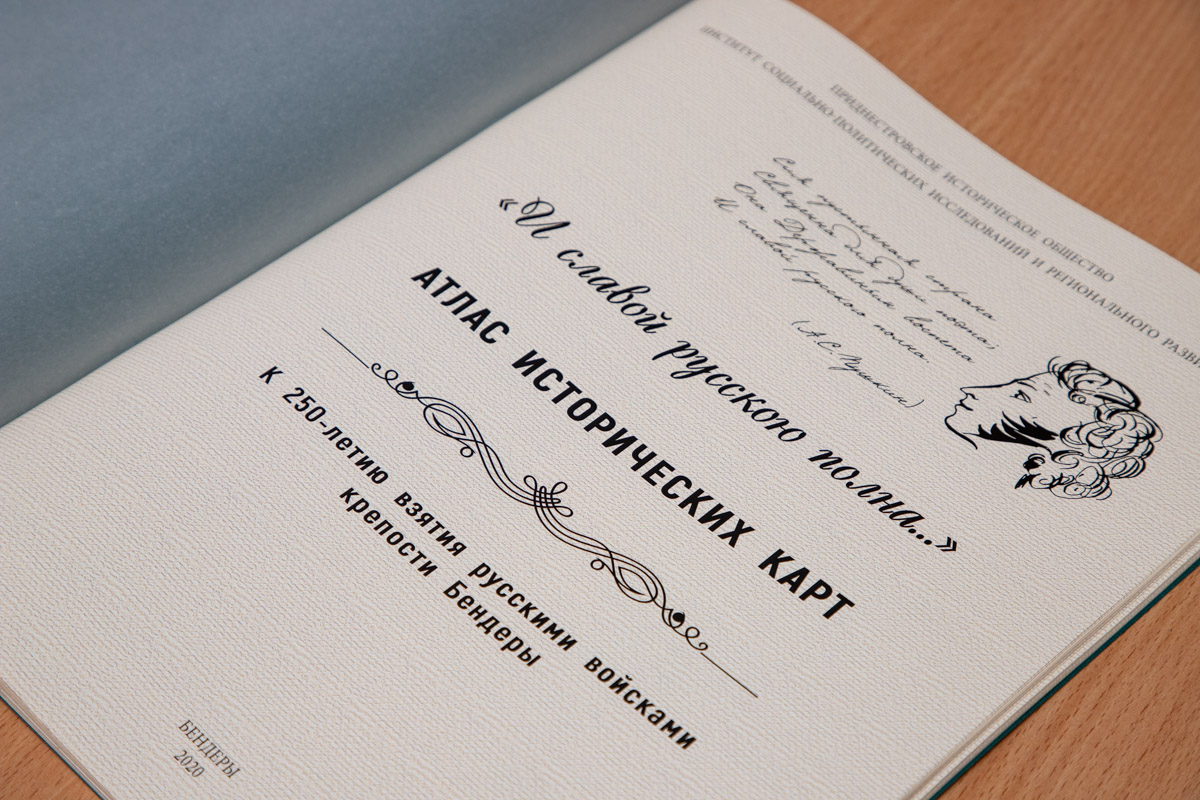 ПРИДНЕСТРОВСКОЕ ИСТОРИЧЕСКОЕ ОБЩЕСТВО
ИНСТИТУТ СОЦИАЛЬНО-ПОЛИТИЧЕСКИХ ИССЛЕДОВАНИЙ И РЕГИОНАЛЬНОГО РАЗВИ
Сия пустынная страна
Священна для души поэта:
Она Державиным воспета
И славой русскою полна.
(А.С. Пушкин)
«И славой русскою полна...»
АТЛАС ИСТОРИЧЕСКИХ КАРТ
К 250-летию взятия русскими войсками
крепости Бендеры
БЕНДЕРЫ
2020